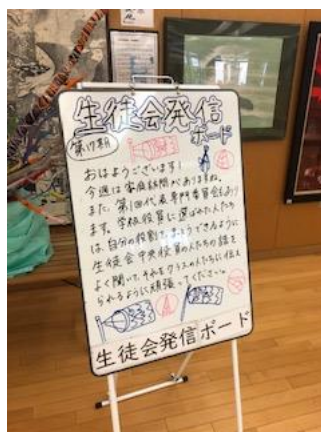 生徒会発信
ボード
第17期
おはようございます!
今週は家庭訪問がありますね。
また、第1回代表専門委員会もあり
ます。学級役員に選ばれた人たち
は、自分の役割をまっとうできるように
生徒会中央役員の人たちの話を
よく聞いて、それをクラスの人たちに伝え
られるように頑張ってください。
生徒会発信ボード